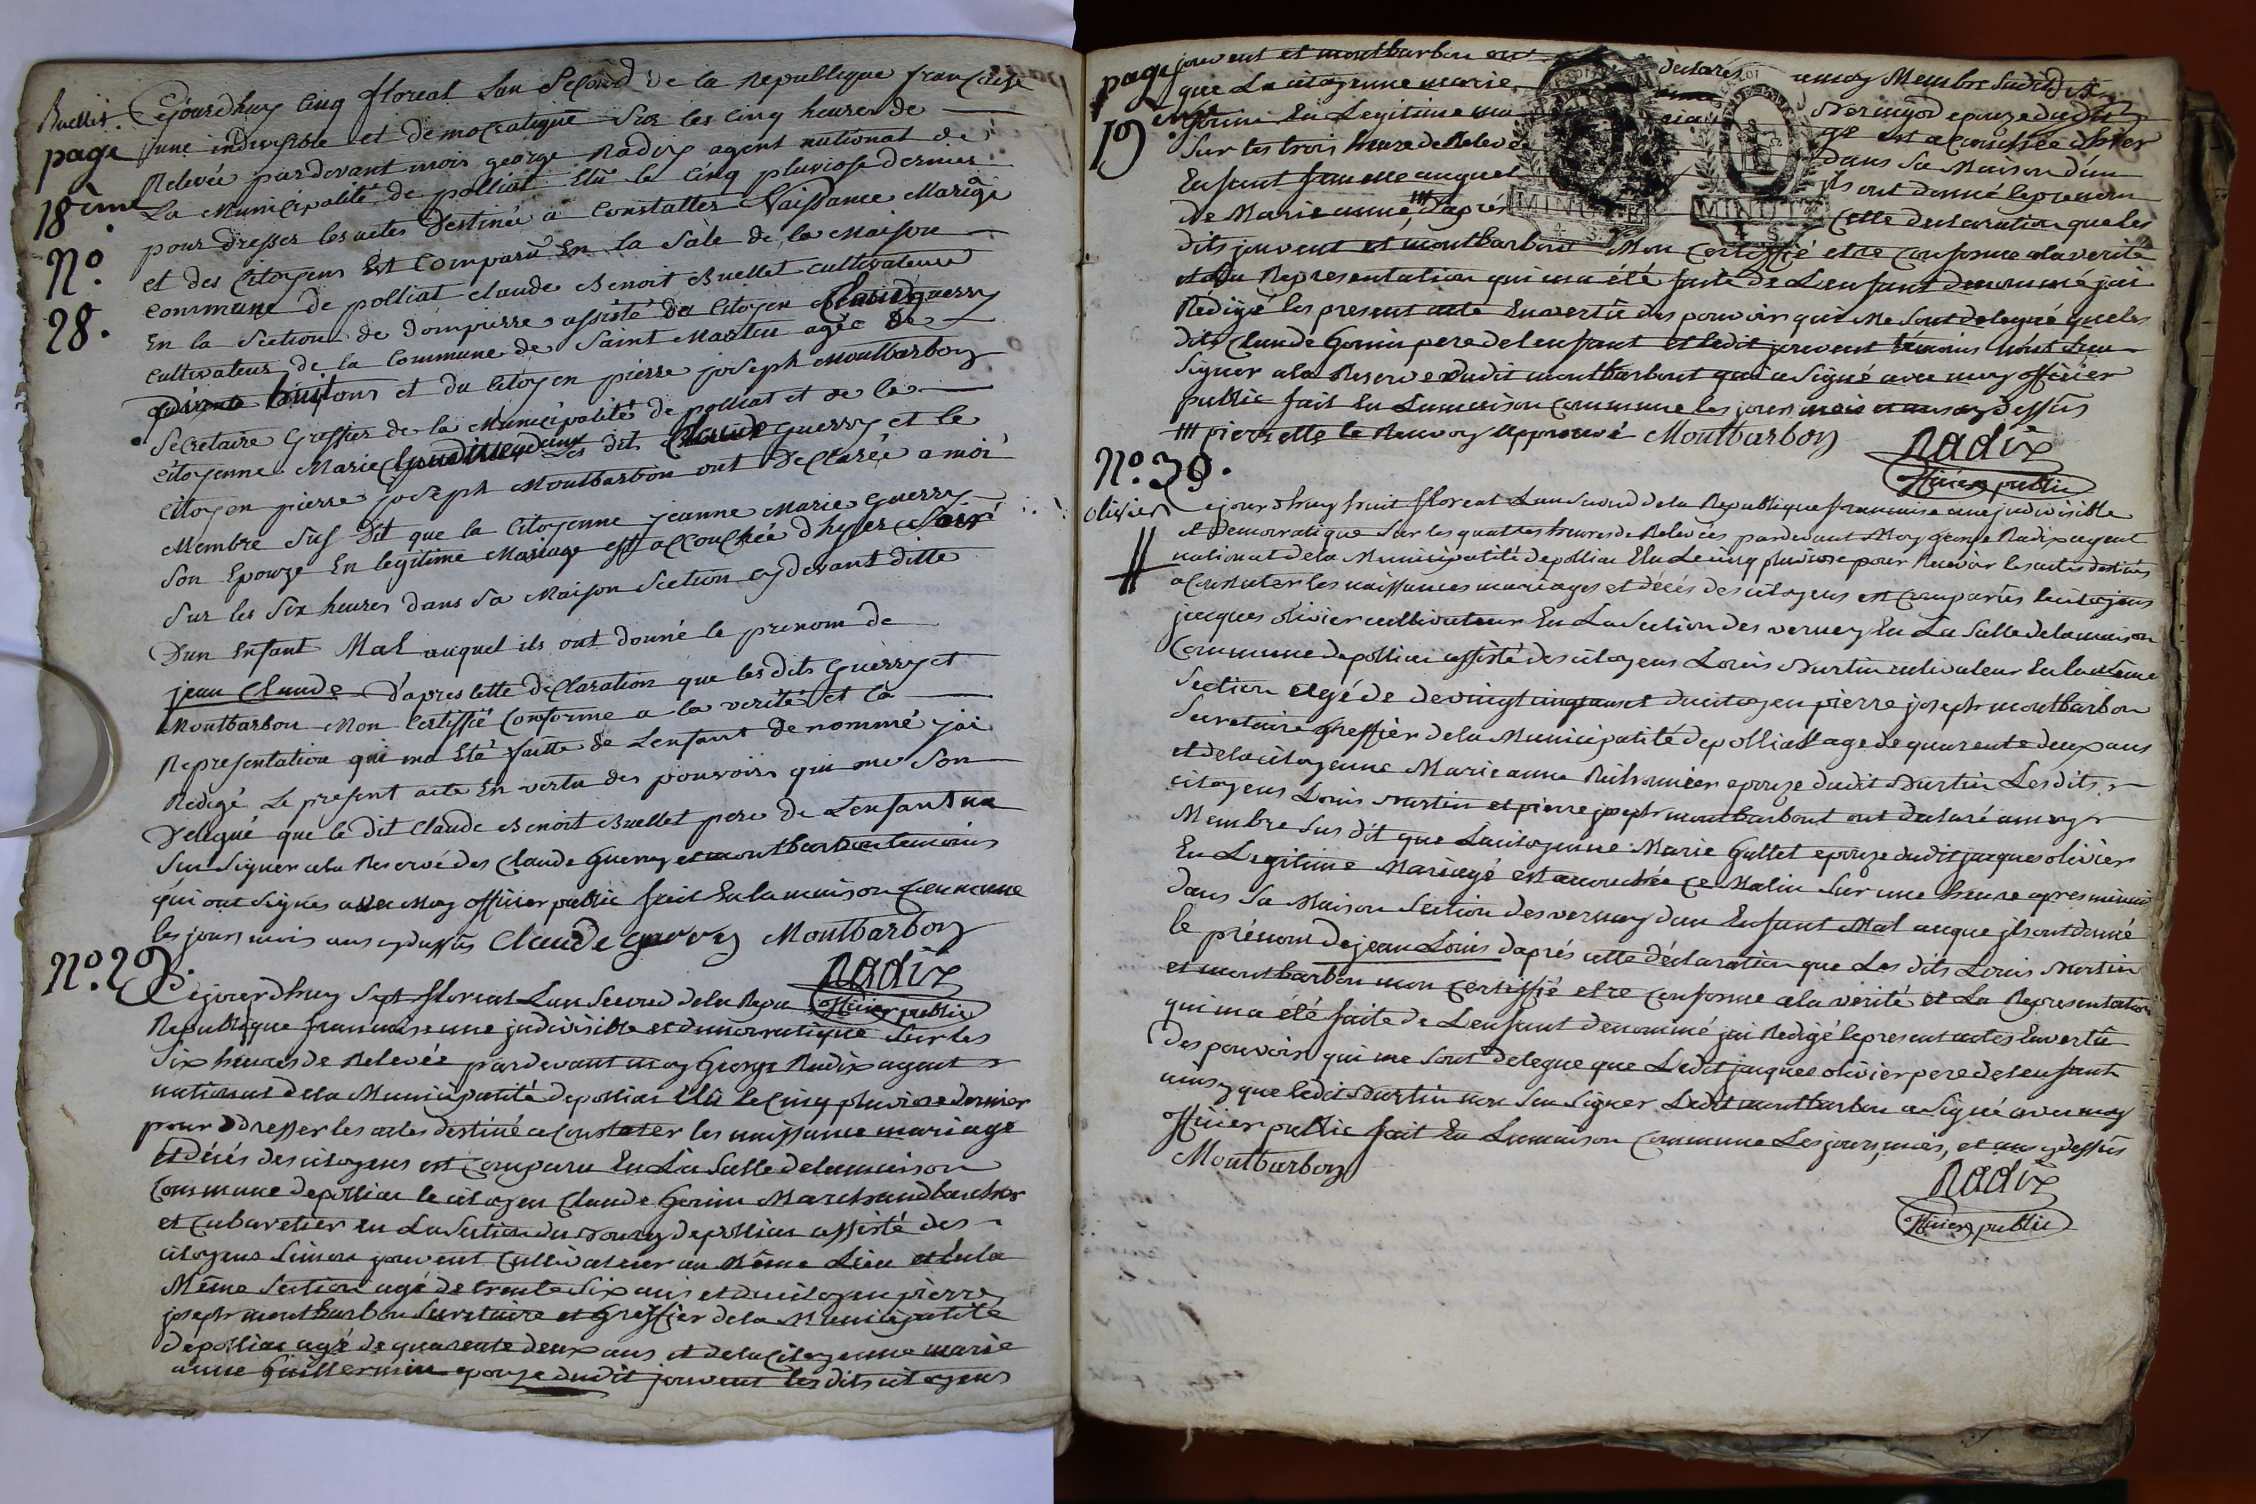 Buellet.
page
18ème
N.°
28.
Cejourdhuy Cinq floreal Lan Second de la Republique française
une indivisible et democratique Sur les Cinq heures de
Relevée pardevant moi george Radix agent national de
La Municipalité de polliat Elu le Cinq pluviose dernier
pour dresser les actes Destinée a Constatter Naissance Mariage
et des Citoyens Est Comparu En la Sale de la Maison
commune de polliat Claude Benoit Buellet cultivateur
En la Section de dompierre assisté du Citoyen Claude guerry
cultivateur de la Commune de Saint Martin agée de
huit ans et du Citoyen pierre joseph Montbarbon
Secretaire Greffier de la Municipalité de polliat et de la
Citoyenne Marie Les dit Claude Guerry et le
Citoyen pierre joseph Montbarbon ont declarée a moi
Membre Sus dit que la Citoyenne jeanne Marie Guerry
Son Epouze En legitime Mariage est accouchée dhyer Soir
Sur les Six heures dans Sa Maison Section cy devant ditte
Dun Enfant Mal auquel ils ont donné le prenom de
jean Claude d'apres cette declaration que les dits Guerry et
Montbarbon Mon Certiffié Conforme a la verité et la
Representation qui ma Eté faitte de Lenfant denommé jai
Redigé Le present acte En vertu des pouvoirs qui me Son
Delegué que le dit Claude Benoit Buellet pere de Lenfant na
Su Signer ala Reservé des Claude Guerry et montbarbon temoins
qui ont Signés avec Moy officier public fait En la maison Commune
les jours mois ans cy dessus Claude guerry Montbarbon
Radix
officier public
N.° 29.
Cejourdhuy Sept floreal Lan Second de la Repu
Republique francaise une judivisible et democratique Sur les
Six heures de Relevée pardevant moy George Radix agent
national dela Municipalité depolliat Elû le Cinq pluviose dernier
pour ddresser les actes destiné a Constater les naissance mariage
et décés descitoyens est Comparu En La Salle delamaison
Commune depolliat le citoyen Claude Gonin Marchand boucher
et Cabaretier En La Section du Bourg depolliat assisté des
citoyens Simon jouvent Cultivateur au Même Lieu et En la
Même Section agé de trente Six ans et du citoyen pierre
joseph montbarbon Secretaire et Greffier dela Municipalité
depolliat agé de quarente deux ans et dela Citoyenne marie
anne Guillermin epouze dudit jouvent les dits citoyens
page
19ème
jouvent et montbarbon ont declarés amoy Membre Susdit
que La citoyenne marie epouze dudit
Gonin En Legitime mariage est acouchée dhier
Sur les trois heure de Relevée dans Sa Maison d'un
Enfant femelle auquel jls ont donné leprenom
de Marie anne, d'aprés Cette declaration que les
dits jouvent et montbarbon Mon Certiffié etre Conforme ala verité
et La Representation qui ma été faite de Lenfant denommé jai
Redigé les present acte En vertû des pouvoir qui Me Sont delegué que les
dits Claude Gonin pere delenfant et ledit jouvent temoins n'ont Seu
Signer ala Reserve dudit montbarbont qui a Signé avec moy officier
public fait En Lamaison Commune les jours mois et ans cy dessûs
pierrette le Renvoy Approuvé Montbarbon
Radix
officier public
N.° 30.
olivier
Cejourdhuy huit floreal Lan Second dela Republique francaise une judivisible
et Democratique Sur les quattres heures de Relevées pardevant Moy george Radix agent
national dela Municipalité depolliat Elu Le cinq pluviose pour Recevoir les actes destinés
a Constater les naissances mariages et décés des citoyens est Comparus le citoyens
jacques olivier cultivateur En La Section des verney En La Salle delamaison
Commune depolliat assisté des citoyens Louis Durtin cultivateur En la même
Section agé de devingt cinq ans et du citoyen pierre joseph montbarbon
Secretaire greffier dela Municipalité depolliat age de quarente deux ans
et dela citoyenne Marie anne epouze dudit Durtin Les dits
citoyens Louis Durtin et pierre joseph montbarbont ont declaré amoy
Membre Sus dit que La citoyenne Marie Gallet epouze dudit jacques olivier
En Legitime Mariagé est acouchée ce Matin Sur une heure apres minuit
dans Sa Maison Section des verney dun Enfant Mal auque jls ont donné
le prénom de jean Louis d'aprés cette déclaration que Les dits Louis Durtin
et montbarbon mon Certiffié etre Conforme ala verité et La Representation
qui ma été faite de Lenfant denommé jai Redigé lepresent actes En vertû
des pouvoir qui me Sont delegue que Ledit jacques olivier pere delenfant
ainsy que ledit Durtin non Seu Signer Ledit montbarbon a Signé avec moy
officier public fait En Lamaison Commune Les jours, mois, et ans cy dessûs
Montbarbon
Radix
officier public
MINUTE
4 S.
MINUTE
4 S.